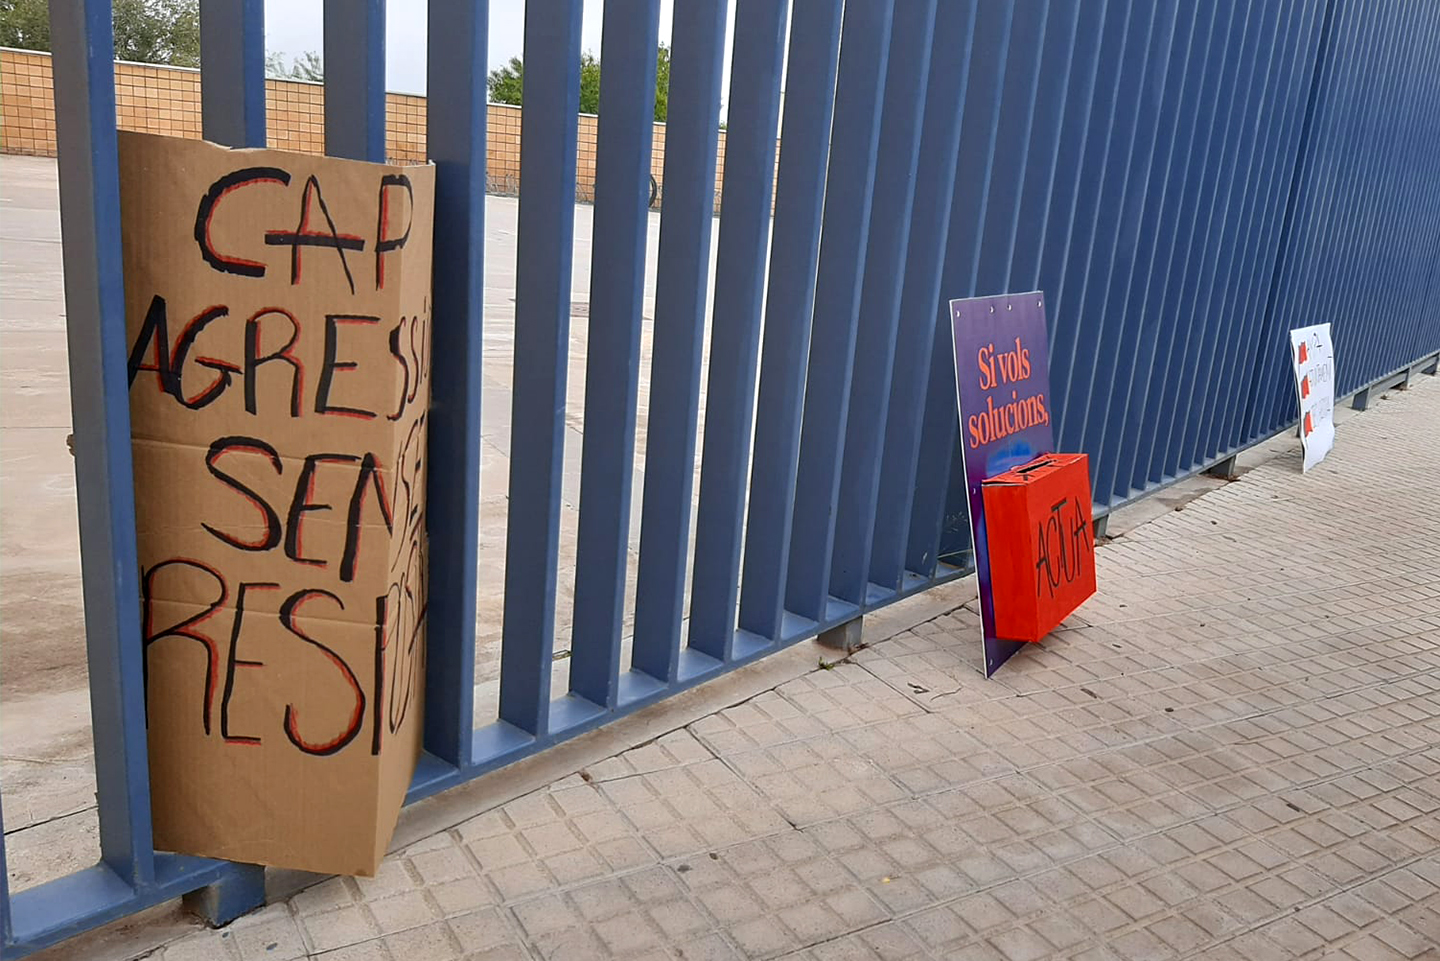 CAP
AGRESSIÓ
SENSE
RESPOS
Si vols
solucions,
ACTUA